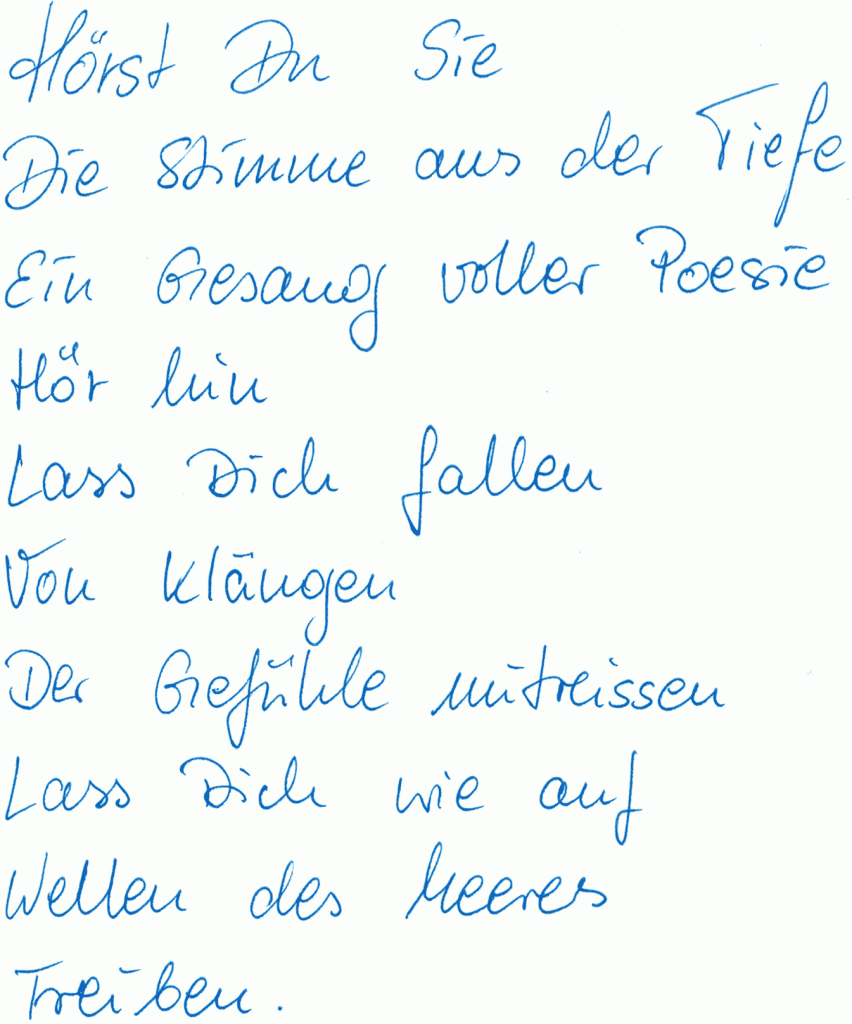 Hörst Du Sie
Die Stimme aus der Tiefe
Ein Gesang voller Poesie
Hör hin
Lass Dich fallen
Von Klängen
Der Gefühle mitreissen
Lass Dich wie auf
Wellen des Meeres
Treiben.